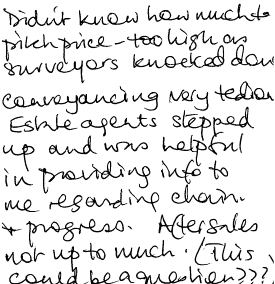 Didn't know how much to
pitch price - too high as
surveyors knocked down
conveyancing very tedious
Estate agents stepped
up and was helpful
in providing info to
me regarding chain.
+ progress. After sales
not up to much. (This
could be a question???)